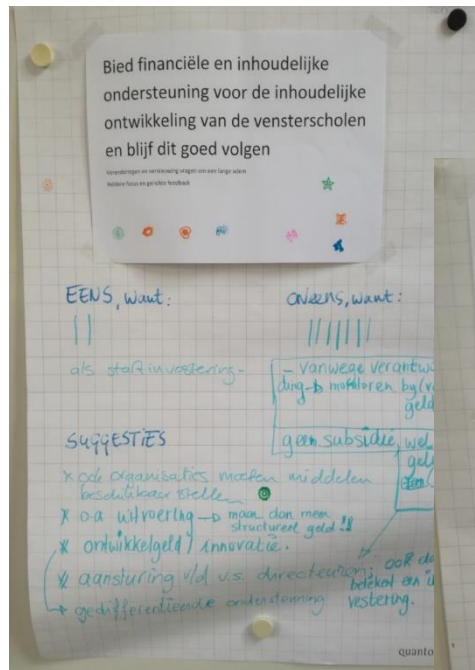 Bied financiële en inhoudelijke
ondersteuning voor de inhoudelijke
ontwikkeling van de vensterscholen
en blijf dit goed volgen
Veranderingen en vernieuwing vragen om een lange adem
Heldere focus en gerichte feedback
EENS, want:
als startinvestering -
ONEENS, want:
- vanwege verantwo
ding → monitoren by (v
geld
geen subsidie, wel
SUGGESTIES
x ook organisaties moeten middelen
beschikbaar stellen
x o.a uitvoering → maar dan meer
structureel geld !!
x ontwikkelgeld / innovatie.
x aansturing v/d v.s. directeuren; ook da
betekent een i
vestering.
→ gedifferentieerde ondersteuning
quanto